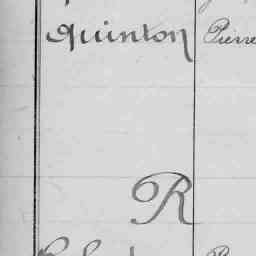 Quinton Pierre
R